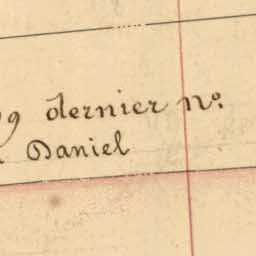 9 dernier no.
Daniel